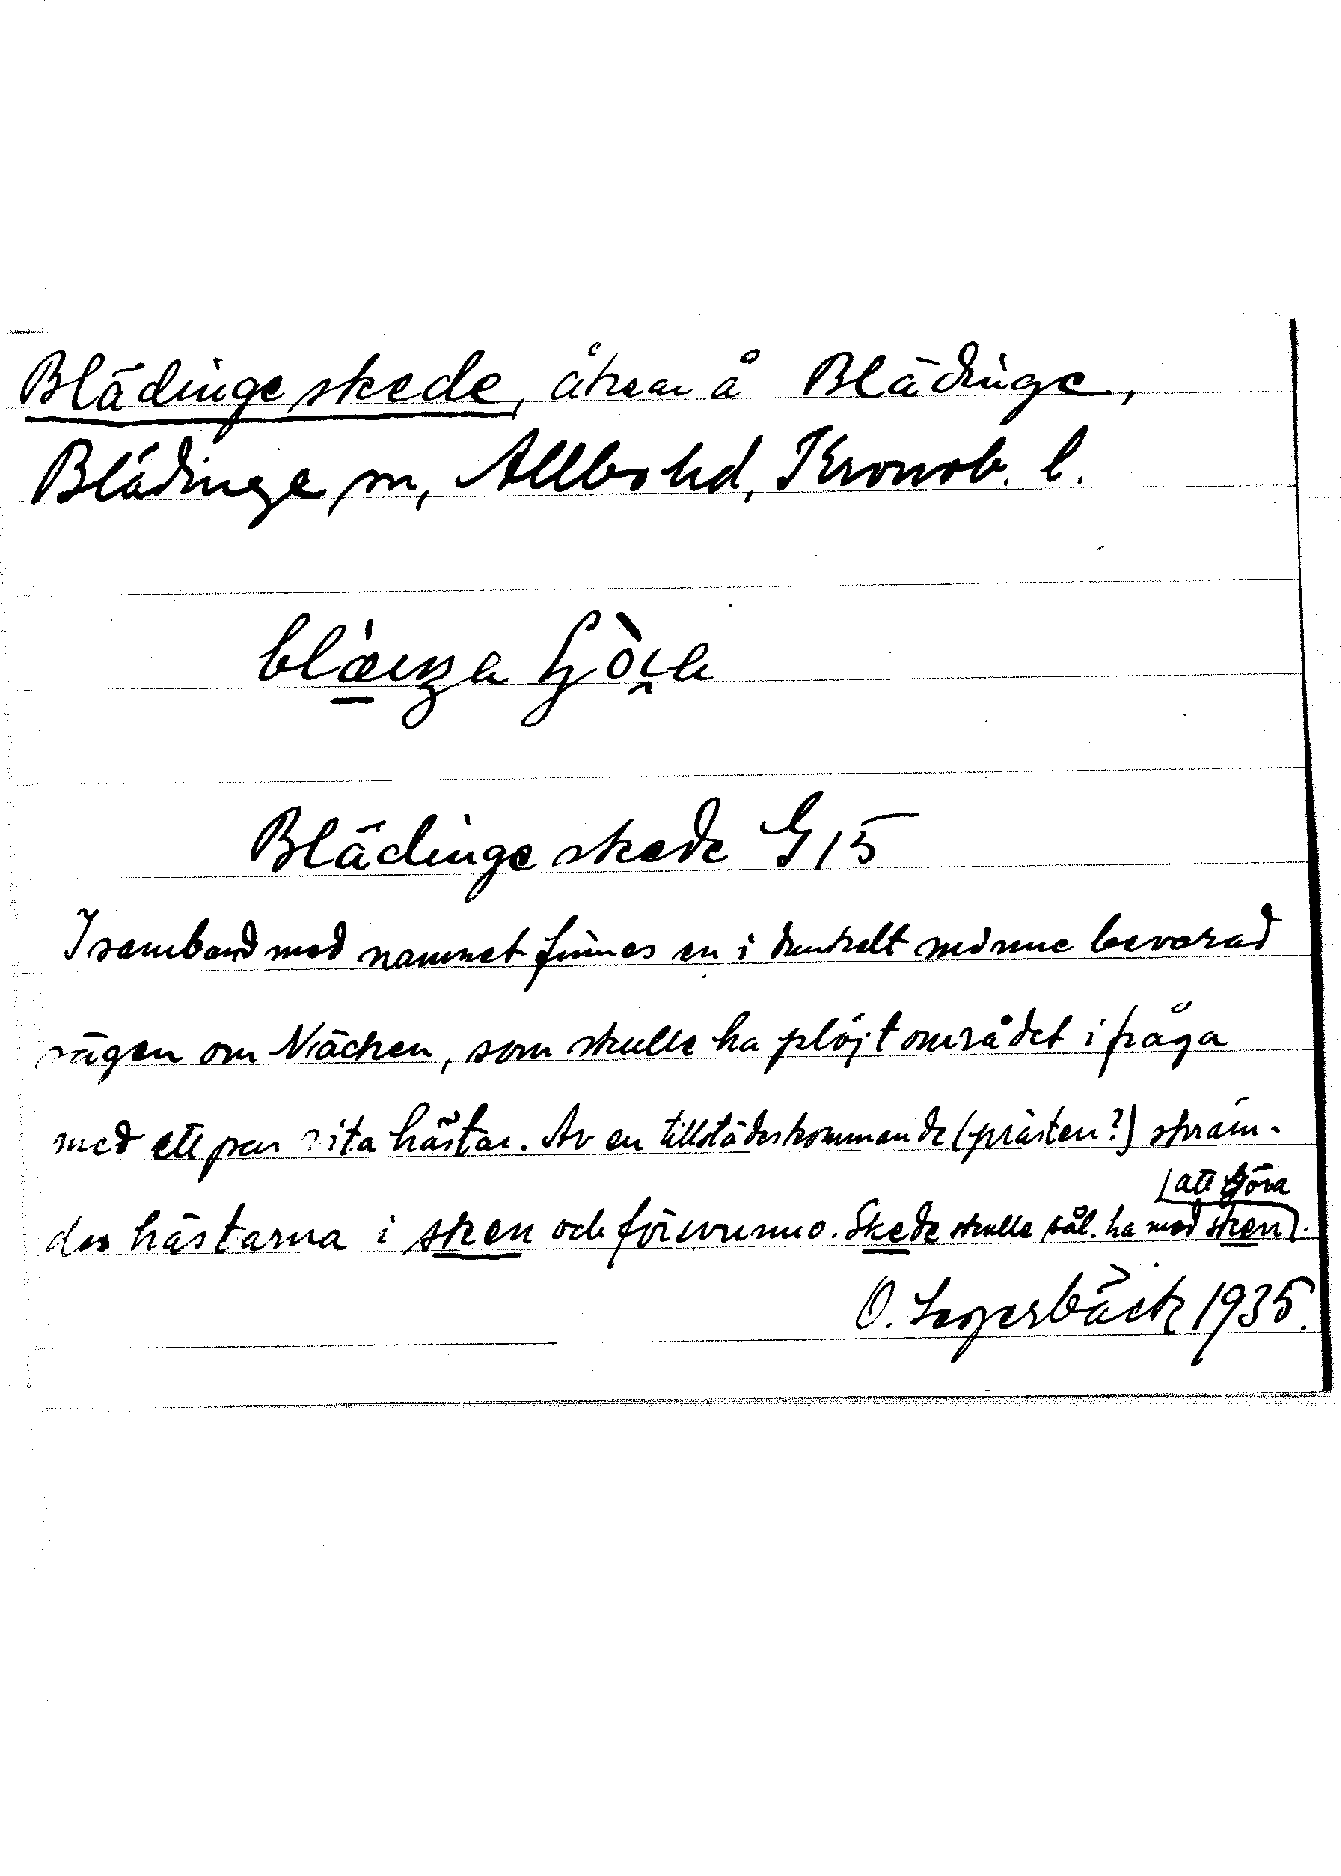 Blädinge skede, åkrar å Blädinge,
Blädinge sn, Allbo hd, Kronob. l.
Blädinge skede G 15
I samband med namnet finnes en i dunkelt minne bevarad
sägen om Näcken, som skulle ha plöjt området i fråga
med ett par vita hästar. Av en tillstädeskommande (prästen?) skräm-
des hästarna i sken och försvunno. Skede skulle sål. ha med sken
att göra.
O. Lagerbäck 1935.